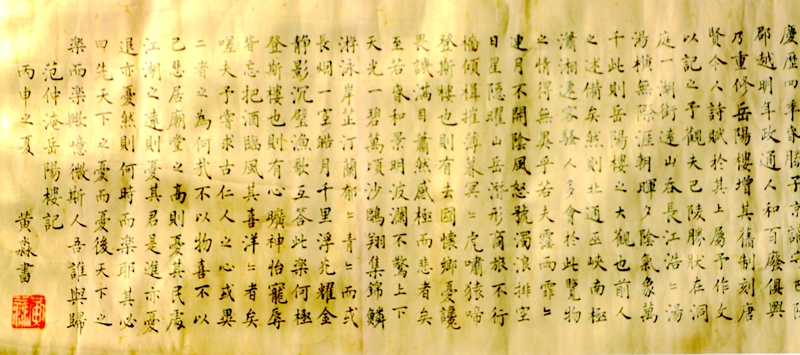 慶歷四年春滕子京謫守巴陵
郡越明年政通人和百廢俱興
乃重修岳陽樓增其舊制刻唐
賢今人詩賦於其上屬予作文
以記之予觀夫巴陵勝狀在洞
庭一湖銜遠山吞長江浩〻湯
湯橫無際涯朝暉夕陰氣象萬
千此則岳陽樓之大觀也前人
之述備矣然則北通巫峽南極
瀟湘遷客騷人多會於此覽物
之情得無異乎若夫霪雨霏〻
連月不開陰風怒號濁浪排空
日星隱曜山岳潛形商旅不行
檣傾楫摧薄暮冥〻虎嘯猿啼
登斯樓也則有去國懷鄉憂讒
畏譏滿目蕭然感極而悲者矣
至若春和景明波瀾不驚上下
天光一碧萬頃沙鷗翔集錦鱗
游泳岸芷汀蘭郁〻青〻而或
長烟一空皓月千里浮光耀金
静影沉璧漁歌互答此樂何極
登斯樓也則有心曠神怡寵辱
皆忘把酒臨風其喜洋〻者矣
嗟夫予嘗求古仁人之心或異
二者之為何哉不以物喜不以
己悲居廟堂之高則憂其民處
江湖之遠則憂其君是進亦憂
退亦憂然則何時而樂耶其必
曰先天下之憂而憂後天下之
樂而樂歟噫微斯人吾誰與歸
范仲淹岳陽樓記
丙申之夏 黄淼書
黄淼